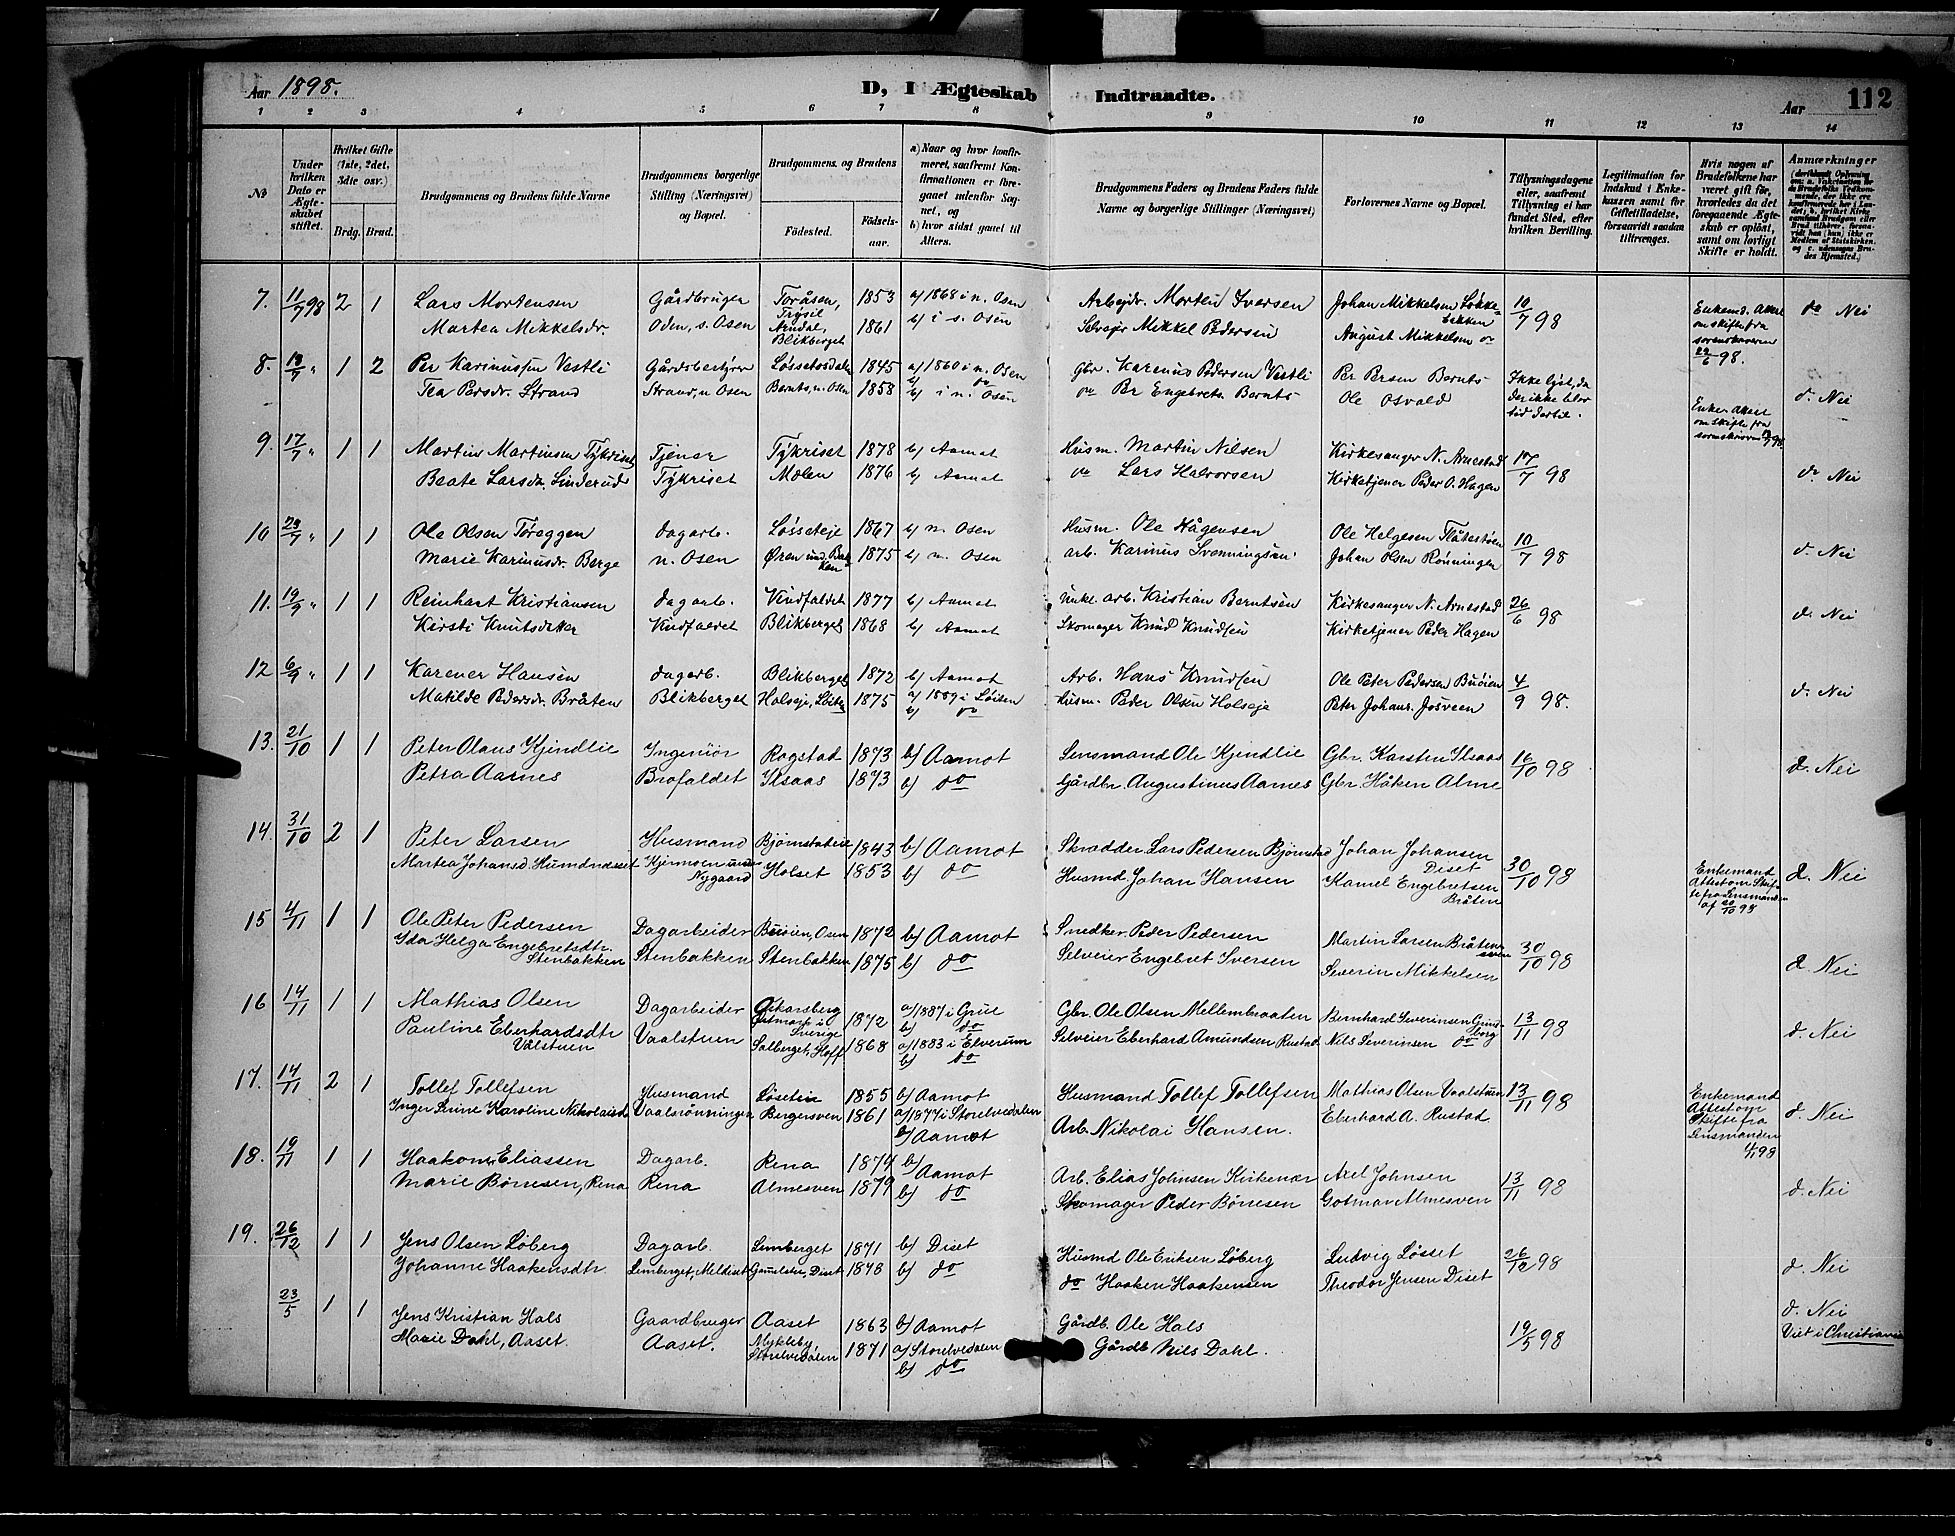 Aar 1898. D, I Ægteskab Indtraadte. Aar 112
1 2 3 4 5 6 7 8 9 10 11 12 13 14
№
Under hvilken Dato er Ægteskabet stiftet.
Hvilket Gifte (1ste, 2det, 3die osv.)
Brdg. Brud.
Brudgommens og Brudens fulde Navne
Brudgommens borgerlige Stilling (Næringsvei) og Bopæl.
Brudgommens og Brudens
Fødested. Fødselsaar.
a) Naar og hvor konfirmeret, saafremt Konfirmationen er foregaaet udenfor Sognet, og
b) hvor sidst gaaet til Alters.
Brudgommens Faders og Brudens Faders fulde Navne og borgerlige Stillinger (Næringsvei)
Forlovernes Navne og Bopæl.
Tillysningsdagene eller, saafremt Tillysning ei har fundet Sted, efter hvilken Bevilling.
Legitimation for Indskud i Enkekassen samt for Giftetilladelse, forsaavidt saadan tiltrænges.
Hvis nogen af Brudefolkene har været gift før, hvorledes da det foregaaende Ægteskab er opløst, samt om lovligt Skifte er holdt.
Anmærkninger
7. 11/7 98 2 1 Lars Mortensen Gårdbruger Toråsen, Trysil 1853 a) 1868 i n. Osen Arbejdr. Morten Iversen Johan Mikkelsen Løkkebakken 10/7 98 Enkemd. Attest om skifte fra sorenskriveren 22/6 98. do Nei
Martea Mikkelsdr. Oden, s. Osen Arndal, Blikberget 1861 b) i s. Osen Selvejer Mikkel Pedersen August Mikkelsen do
8. 12/7 " 1 2 Per Karinussen Vestli Gårdsbestyrer Løssetsdalen 1845 a) 1860 i n. Osen Gbr. Karinus Pedersen Vestli Per Persen Bernts- Ikke lyst, da der ikke blev tid dertil. Enke. Attest om skifte fra sorenskriveren d. Nei
Tea Persdr. Strand Strand, n Osen Bernts, n. Osen 1858 b) i n. Osen do Per Engebrets. Bernts- Ole Osvald
9. 17/7 " 1 1 Martin Martinsen Tykriset Tjener Tykriset 1878 b) Aamot Husm. Martin Nilsen Kirkesanger N. Arnestad 17/7 98 do Nei
Beate Larsdr. Linderud Tykriset Molen 1876 b) Aamot do Lars Halvorsen Kirketjener Peder O. Hagen
10 23/7 " 1 1 Ole Olsen Tøræggen dagarb. Løsseteje 1867 b) n. Osen Husm. Ole Hågensen Ole Helgesen Flåtestøen 10/7 98 d. Nei
Marie Karinusdr. Berge n. Osen Øren und. Bakken 1875 b) n. Osen arb. Karinus Svenningsen. Johan Olsen Rønningen
11. 19/9 " 1 1 Reinhart Kristiansen dagarb. Vindfaldet 1877 b) Aamot Arb. Kristian Berntsen Kirkesanger N. Arnestad 26/6 98 d. Nei
Kirsti Knutsdatter Vindfaldet Blikberget 1868 b) Aamot Skomager Knud Knudsen Kirketjener Peder Hagen
12 6/9 " 1 1 Karener Hansen dagarb. Blikberget 1872 b) Aamot Arb. Hans Knudsen Ole Peter Pedersen Buøien 4/9 98. d. Nei
Matilde Pedersdr. Bråten Blikberget Holseje, Løiten 1875 a) 1889 i Løiten b) do Husm. Peder Olsen Holseje Peter Johans. Josveen
13. 21/10 1 1 Peter Olaus Kjindlie Ingeniør Rogstad 1873 b) Aamot Lensmand Ole Kjindlie Gbr. Karsten Ilsaas 16/10 98 d. Nei
Petra Aarnes Brofaldet Ilsaas 1873 b) do Gårdbr. Augustinus Aarnes Gbr. Håken Alme
14. 31/10 2 1 Peter Larsen Husmand Bjørnstadeie 1843 b) Aamot Skrædder Lars Pedersen Bjørnstad Johan Johansen Diset 30/10 98 Enkemand Attest om Skifte fra Lensmanden af 20/10 98 d. Nei
Martea Johansd. Humdnæsset Kjernmoen under Nygaard Holset 1853 b) do Husmd. Johan Hansen Kamel Engebretsen Bråten
15 4/11 1 1 Ole Peter Pedersen Dagarbeider Buøien, Osen 1872 b) Aamot Snedker Peder Pedersen Martin Larsen Bråtensveen 30/10 98 d. Nei
Ida Helga Engebretsdtr. Stenbakken Stenbakken Stenbakken 1875 b) do Selveier Engebret Iversen Severin Mikkelsen
16 14/11 1 1 Mathias Olsen Dagarbeider Oskarsberg i Sverige 1872 a) 1887 i Grue b) do Gbr. Ole Olsen Mellembraaten Bernhard Severinsen Grindsborg 13/11 98 d. Nei
Pauline Eberhardsdtr Vålstuen Vaalstuen Salberget, Hoff 1868 a) 1883 i Elverum b) do Selveier Eberhard Amundsen Rustad Nils Severinsen do
17. 14/11 2 1 Tollef Tollefsen Husmand Løseteie 1855 b) Aamot Husmand Tollef Tollefsen Mathias Olsen Vaalstuen 13/11 98 Enkemand Attest om Skifte fra Lensmanden 4/11 98 d. Nei
Inger Serine Karoline Nikolaisd. Vaalsrønningen Bergersven 1861 a) 1877 i Storelvedalen b) Aamot Arb. Nikolai Hansen. Eberhard A. Rustad
18. 19/11 1 1 Haakon Eliassen Dagarb. Rena 1874 b) Aamot Arb. Elias Johnsen Kirkenær Axel Johnsen 13/11 98 d. Nei
Marie Børresen, Rena Rena Almesven 1879 b) do Skomager Peder Børresen Gotmar Almesven
19. 26/12 1 1 Jens Olsen Løberg Dagarb. Lemberget 1871 b) Diset Husmd Ole Eriksen Løberg Ludvig Løsset 26/12 98 d. Nei
Johanne Haakensdtr. Lemberget, Meldiset Gammelstu, Diset 1878 b) do do Haaken Haakensen Theodor Jensen Diset
23/5 1 1 Jens Kristian Hals Gaardbruger Aaset 1863 b) Aamot Gårdb. Ole Hals 19/5 98 d. Nei
Marie Dahl, Aaset. Aaset. Mykleby, Storelvedalen 1871 a) Storelvedalen b) do Gårdb. Nils Dahl. Viet i Christiania